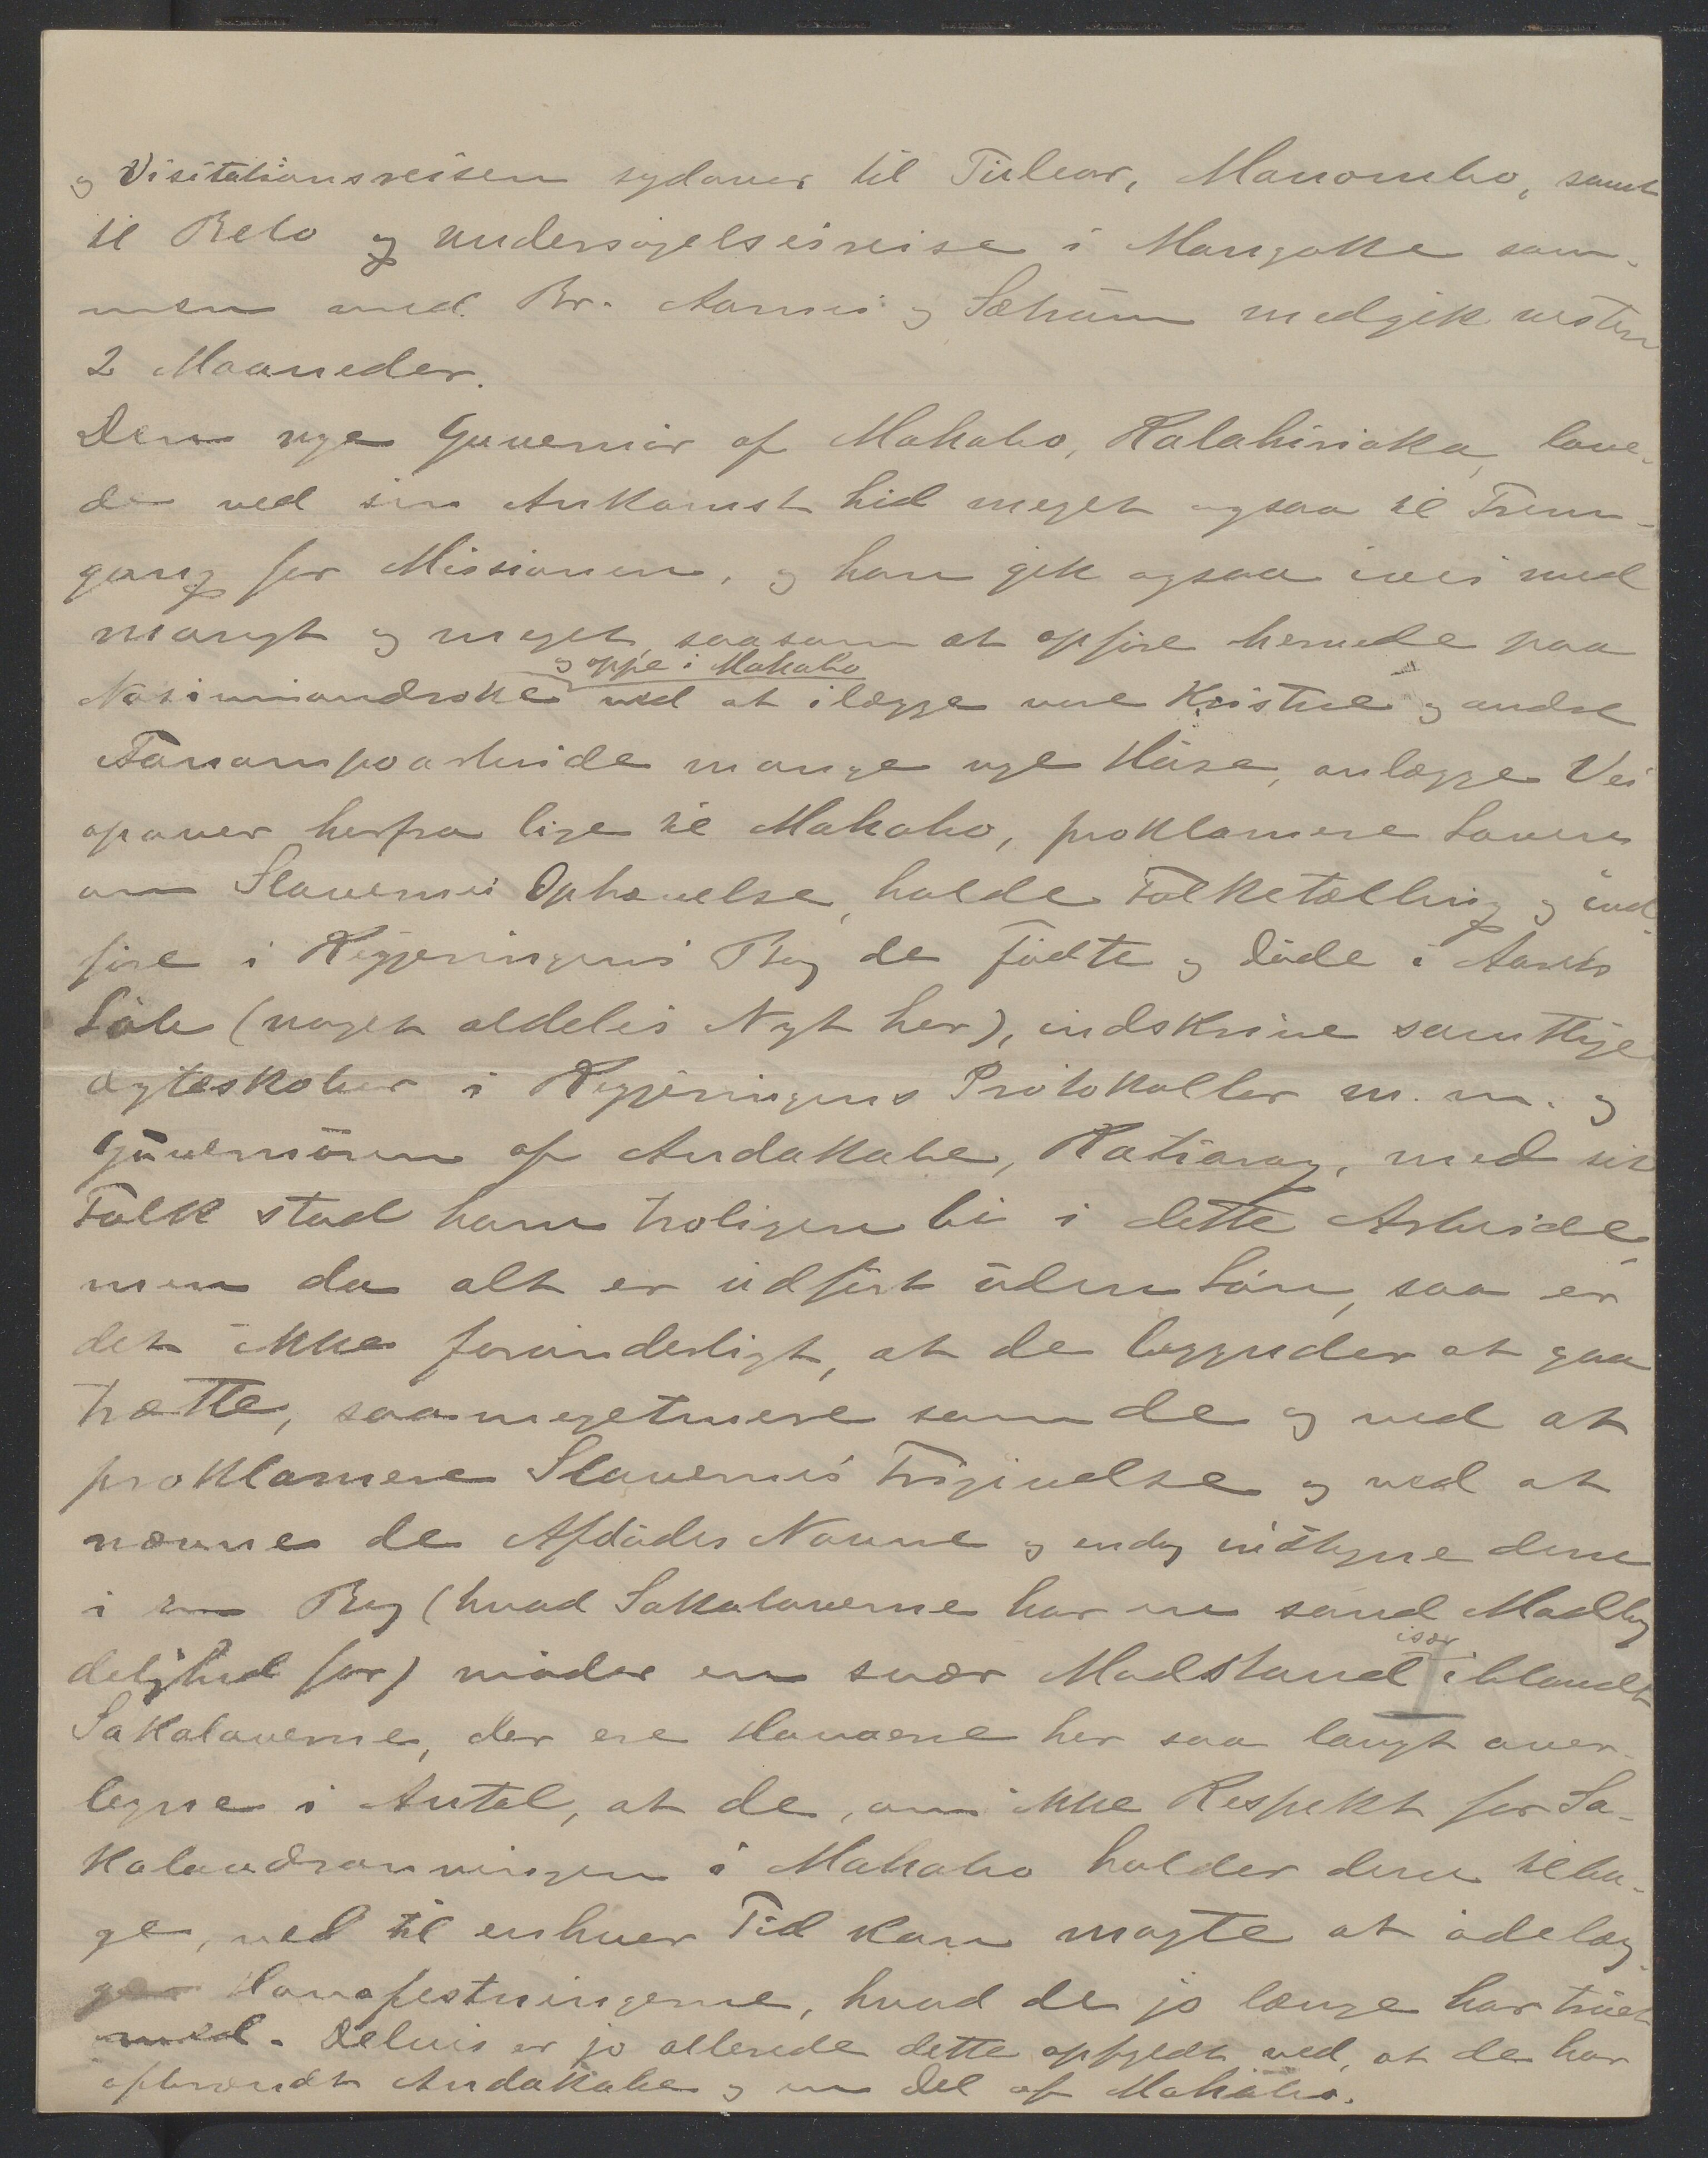 og Visitationsreisen sydover til Tulear, Manombo, samt
til Belo og Undersøgelsesreise i Mangoke sam-
men med Br. Aarnes og Sæhüm medgik næsten
2 Maaneder.
Den nye Guvernør af Mahabo, Ralahiniaka, love-
de ved sin Ankomst hid meget ogsaa til Frem-
gang for Missionen, og han gik ogsaa ivei med
mangt og meget, saasom at opføre hernede paa
og oppe i Mahabo
Nosimiandroke ved at ilægge vore Kristne og andre
Fanompoarbeide mange nye Huse, anlægge Vei
opover herfra lige til Mahabo, proklamere Loven
om Slavernes Ophævelse, holde Folketælling og ind-
føre i Regjeringens Bog de fødte og døde i Aarets
Løb (noget aldeles Nyt her), indskrive samtlige
Ægteskaber i Regjeringens Protokoller m. m. og
Guvernøren af Andakabe, Ratiaray, med sit
Folk stod ham troligen bi i dette Arbeide,
men da alt er udført uden Løn, saa er
det ikke forunderligt, at de begynder at gaa
trætte, saameget mere som de og ved at
proklamere Slavernes Frigivelse og ved at
nævne de Afdødes Navne og endog indtegne dem
i en Bog (hvad Sakalaverne har en sand Modby-
delighed for) møder en svær Modstand iblandt
især
Sakalaverne, der ere Hovaerne her saa langt over-
legne i Antal, at de, om ikke Respekt for Sa-
kalavdronningen i Mahabo holder dem tilba-
ge, ved til enhver Tid kan magte at ødelæg-
ge Hovafestningerne, hvad de jo længe har truet
med. Delvis er jo allerede dette opfyldt ved, at de har
opbrændt Andakabe og en Del af Mahabo.